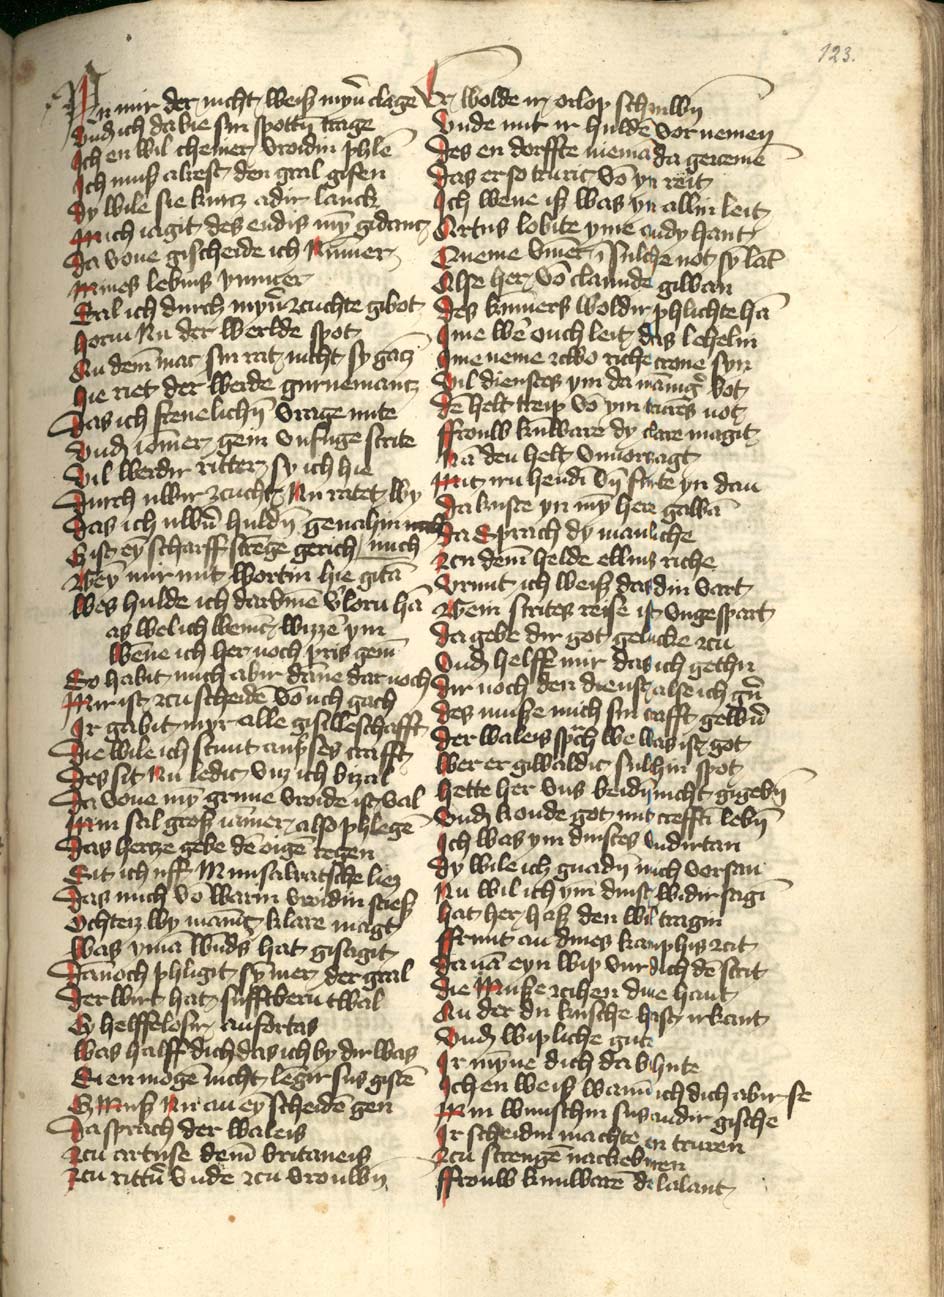 123.
An mir der nicht weiß myn̄ clage
Vnd ich da bie sin spottū trage
Ich en wil cheiner vroidin phlē
Ich muß alrest den gral gisen
Dy wile sie kurcz adir lanck
Mich iagit des endis my̅ gidanc
Da vone gischeide ich Nūmer
Mines lebins ymmer
Sal ich durch myn̄ zcuchte gibot
Horin Nu der werlde spot
So dem̄ mac sin rat nicht sy gācz
Hie riet der werde gurnemancz
Das ich frevelichn̄ vrage mite
Vnd iomer gein vnfuge strite
Vil werdir ritter sy ich hie
Durch uwir zcucht Nu ratet wy
Das ich uwn̄ huldn̄ genahin mack
Es ist ey̅ scharff strēge gerich mich
Wey̅ mir mit wortin hie gitā
Wes hulde ich darūme v'lorn hā
as welich wenic wizzē ym
Wene ich her noch pris gem̄
So habit mich abir dāne dar noch
Mir ist zcu scheidē vō uch gach
Ir gabit myr alle gisclleschafft
Die wile ich stunt an pses crafft
Des sit Nu ledic vnz ich bizal
Da vone my̅ grune vroide ist val
Min sal groß iamer also phlegē
Das hercze gebe dē oigē regen
Sit ich uff Munsalvatsche liez
Das mich vō warin vroidin stieß
Ochteiz wy manig klare magt
Was ymā wūds hat gisagit
Dānoch phligit sy̅ mer der gral
Der wirt hat sufftbern twal
Ey helffelosir anfortas
Was halff dich das ich by dir was
Si en mogē nicht lēgir sus gistē
Es Muß Nu an ey̅ scheidē gen
Da sprach der waleis
Zcu artuse dem̄ britaneis
Zcu rittn̄ vnde zcu vrouwn̄
Er wolde ir orlop schuwn̄
Vnde mit ir huldē vor nemen
Des en dorffte niemā da gezcemē
Das er so truric vō yn reit
Ich wene iß was yn allin leit
Artus lobite yme andy hant
Queme vmēr ī sulche not sy lāt
Alse her vō clamide gilwan
Des kumers woldir phlichte hā
Ime we̅ ouch leit das lehelin
Ime neme zcwo riche crone syn
Vil dienstes ym da mānig' bot
Dē helt treip vō ym trures not
Frouw kunware dy clare magit
Nā den helt vnuorzagt
Mit iru hendī vn̄ furte yn dan
Da kuste yn my̅ here gawā
Da sprach dy manliche
Zcu dem̄ helde ellins riche
Vrunt ich weiß das din vart
Wem strites reise ist vngespart
Da gebe dir got gelucke zcu
Vnd helffe mir das ich gethu
Dir noch den dienst alse ich gn̄
Des muße mich sin crafft gewn̄
Der waleis sp̄ch we was ist got
Wer er giwaldic sulhin spot
Hette her vns beidn̄ nicht gigebn̄
Vnd konde got mit crefftī lebn̄
Ich was ym dinstes vndirtan
Dy wile ich gnadn̄ mich vorsan
Nu wil ich ym dinst widir sagī
Hat her haß den wil' tragin
Frunt an dines kamphis zcit
Da nā eyn wip vur dich dē strit
Die Muße zcihen dine hant
An der du kusche hast irkant
Vnd wipliche gute
Ir mynne dich da bhute
Ich en weiß wann ich dich abir se
Min wunschin sus an dir gische
Ir scheidin machte in truren
Zcu strengē nackeburen
Frouw kunwarē de lalant